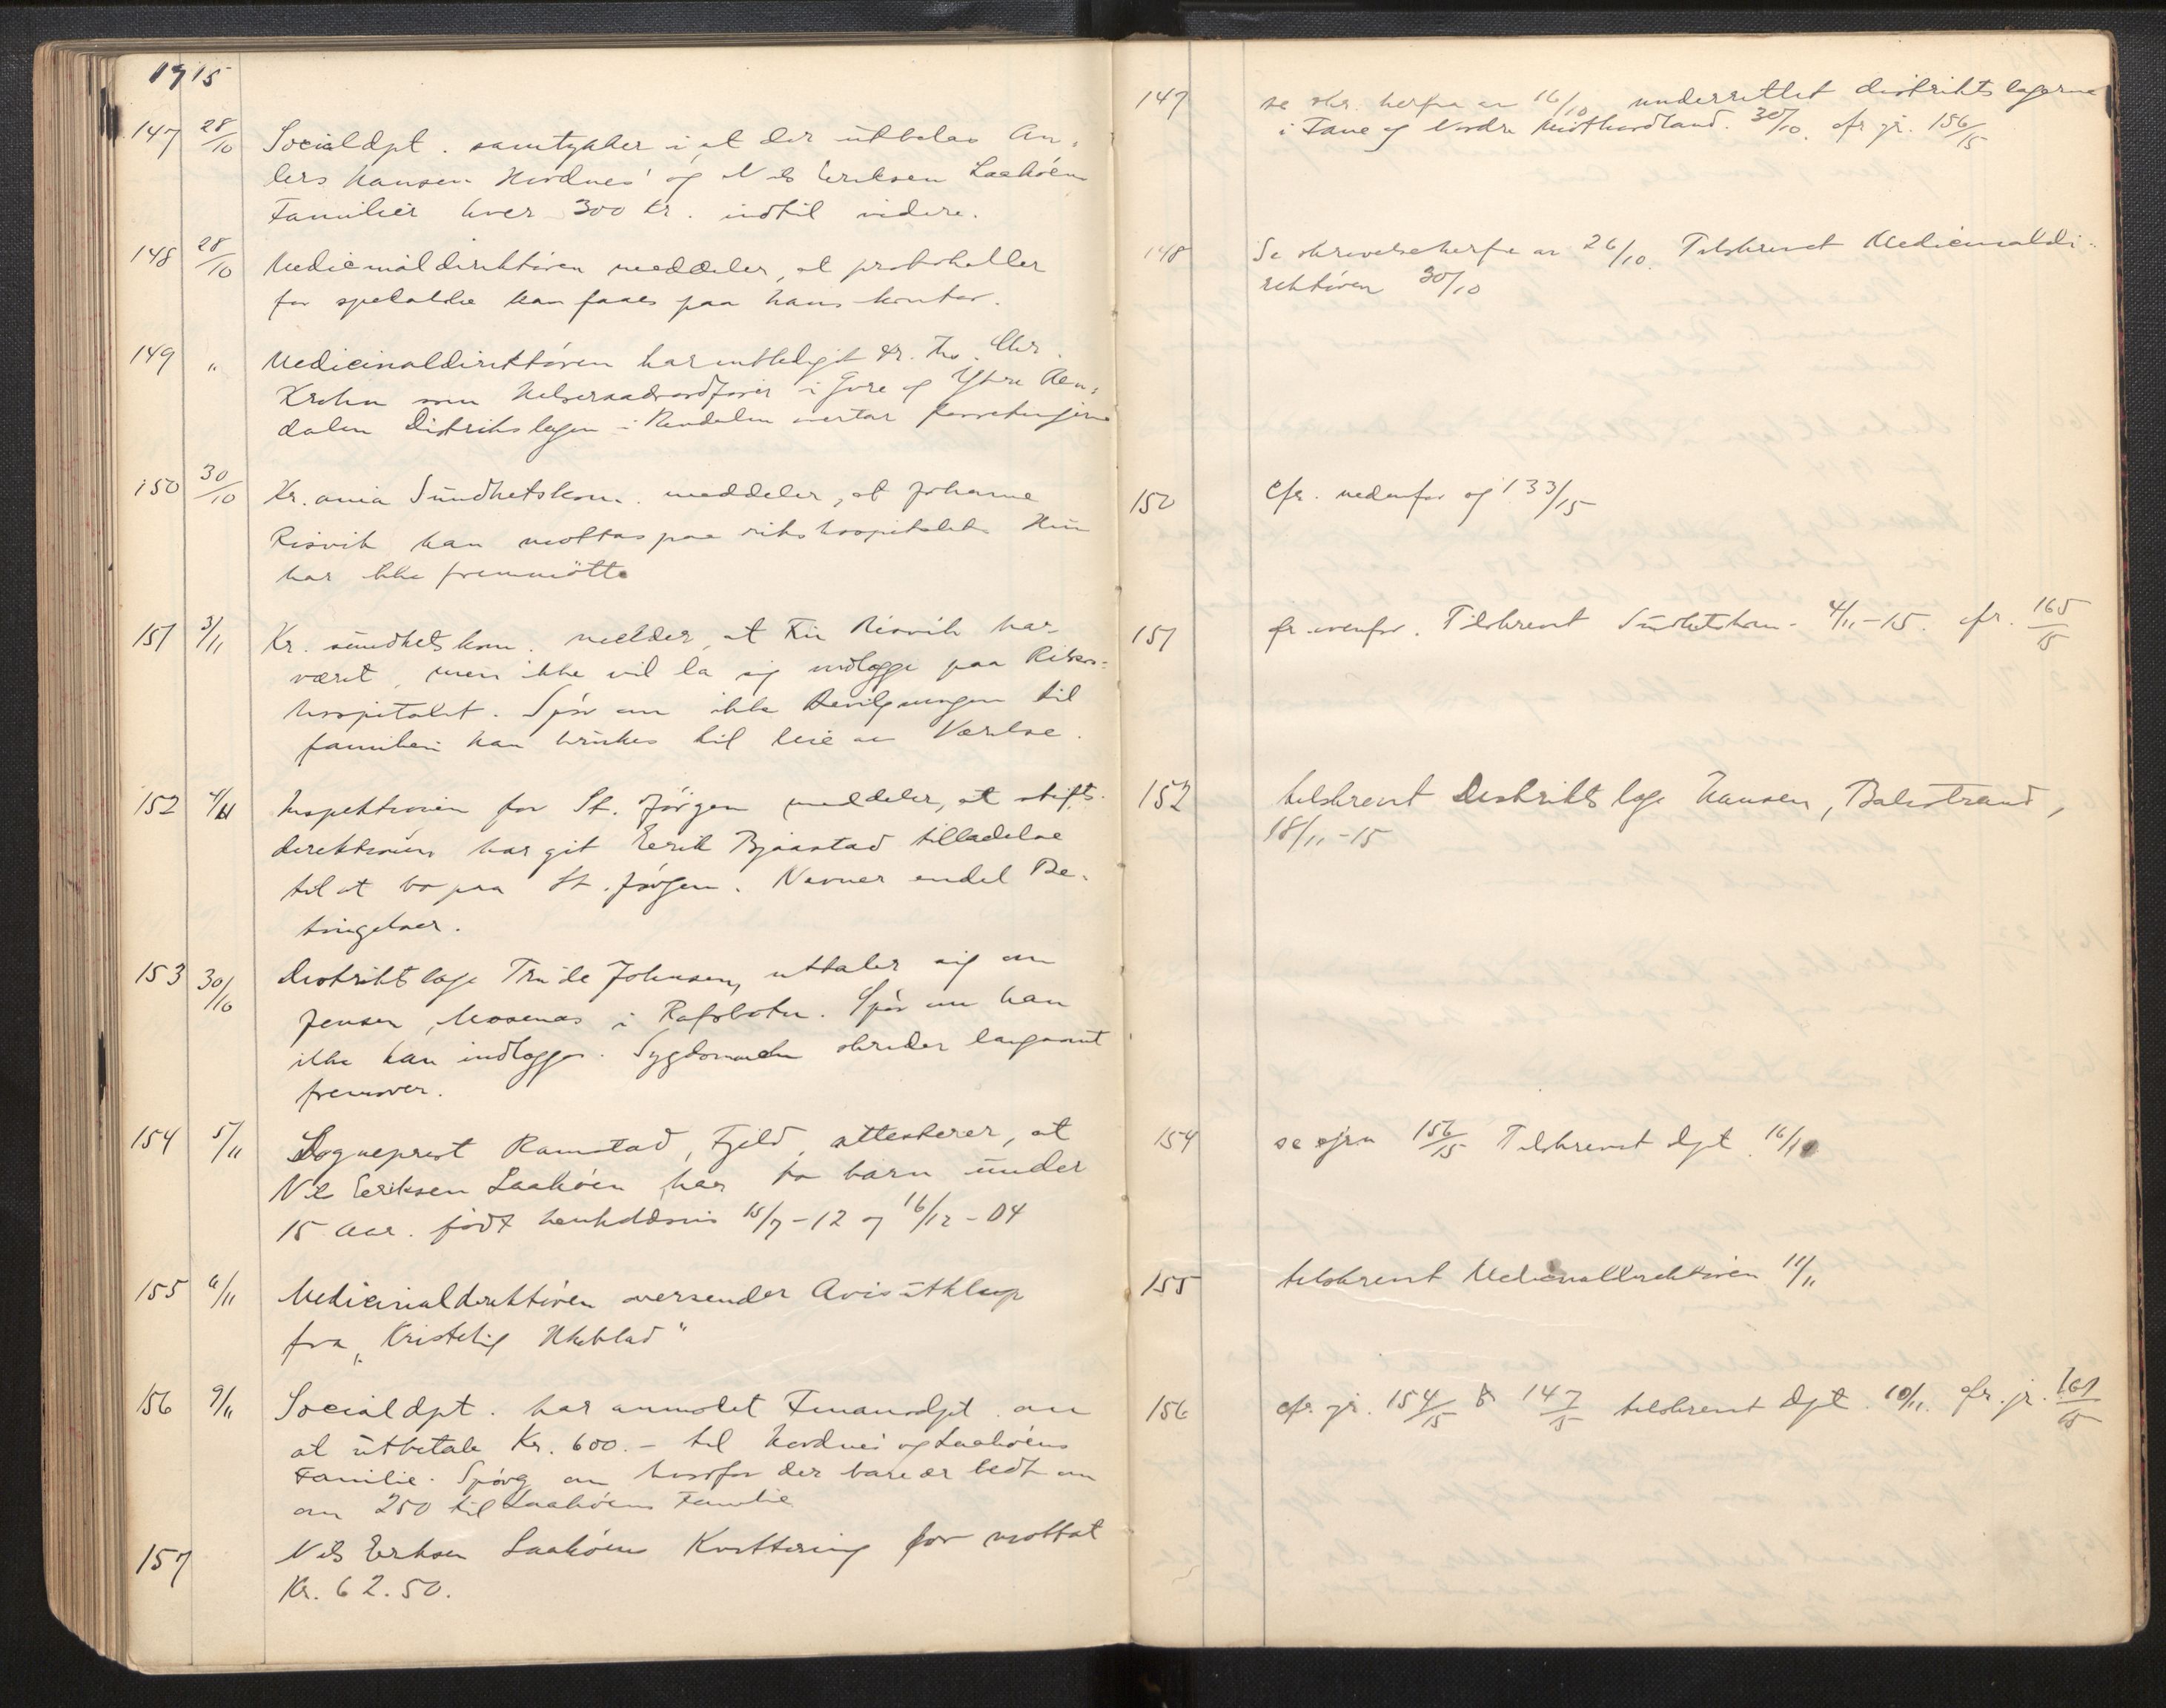 1915
147 28/10 Socialdpt. samtykker i at der utbetales An-
ders Hansen Nordnes' og Nils Eriksen Laakøens
Familier hver 300 kr. indtil videre.
148 28/10 Medicinaldirektøren meddeler, at protokoller
for spedalske kan faaes paa hans kontor.
149 " Medicinaldirektøren har entlediget dr. Chr.
Krohn som Helseraadsordfører i Gore og Ytre Ren-
dalen Distriktslægen i Rendalen overtar forretningerne
150 30/10 Kr.ania Sundhetskom. meddeler, at Johanne
Risvik kan mottas paa rikshospitalet. Hun
har ikke fremmøtt
151 3/11 Kr. sundhetskom. melder, at Risvik har
været, men ikke vil la sig indlægge paa Riks-
hospitalet. Spør om ikke Bevilgningen til
familien kan brukes til leie av Værelse.
152 4/11 Inspektionen for St. Jørgen meddeler, at stifts-
direktionen har git Eerik Bjåstad tilladelse
til at bo paa St. Jørgen. Nævner endel Be-
tingelser.
153 30/10 Distriktslæge Johnsen, uttaler sig om
Jensen, Mosenes i Rafsbotn. Spør om han
ikke kan indlægges. Sygdommen skrider langsomt
fremover.
154 5/11 Sogneprest Ramstad, Fjeld, attesterer, at
Nils Eriksen Laakøen har to barn under
15 Aar. født henholdsvis 15/7-12 og 16/12-04
155 6/11 Medicinaldirektøren oversender Avisutklip
fra „Kristelig Ukeblad"
156 9/11 Socialdpt. har anmodet Finansdpt. om
at utbetale Kr. 600.- til Nordnes' og Laakøens
Familie. Spørg om hvorfor der bare er bedt om
om 250 til Laakøens Familie
157 Nils Eriksen Laakøens Kvittering for mottat
Kr. 62.50.
147 se skr. herfra av 16/10 underrettet distriktslægerne
i Fane og Nordre Midthordland. 30/10. cfr jr. 156/15
148 Se skrivelse herfra av 26/10. Tilskrevet Medicinaldi-
rektøren 30/10
150 Cfr. nedenfor og 133/15
151 cfr ovenfor. Tilskrevet Sundhetskom. 4/11-15. cfr. 165/15
152 tilskrevet Distriktslæge Hansen, Balestrand,
18/11-15
154 se 156/15 Tilskrevet Dpt. 16/11
155 tilskrevet Medicinaldirektøren 11/11
156 cfr. jr. 154/15 & 147/15 tilskrevet Dpt. 10/11. cfr. jr. 161/15